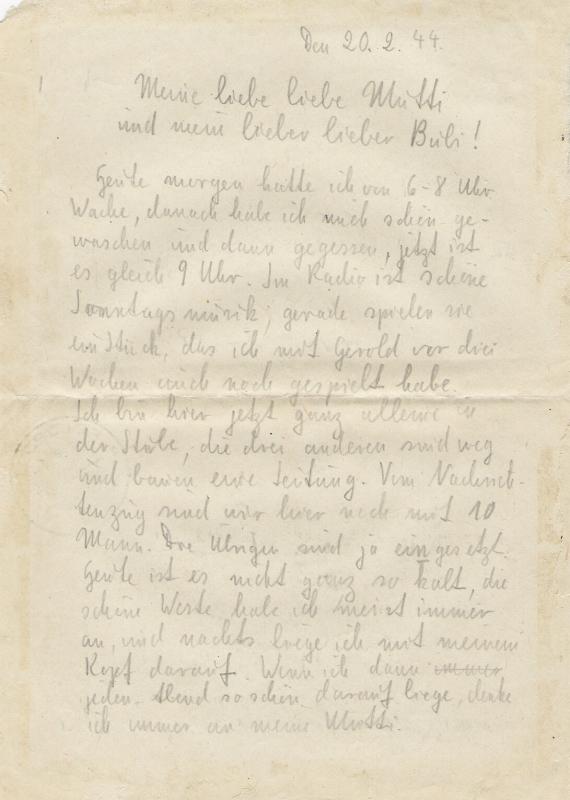 Den 20. 2. 44.
Meine liebe liebe Mutti
und mein lieber lieber Bubi!
Heute morgen hatte ich von 6-8 Uhr
Wache, danach habe ich mich schön ge-
waschen und dann gegessen, jetzt ist
es gleich 9 Uhr. Im Radio ist schöne
Sonntagsmusik, gerade spielen sie
ein Stück, das ich mit Gerold vor drei
Wochen auch noch gespielt habe.
Ich bin hier jetzt ganz alleine in
der Stube, die drei anderen sind weg
und bauen eine Leitung. Vom Nachrich-
tenzug sind wir hier noch mit 10
Mann. Die Übrigen sind ja eingesetzt.
Heute ist es nicht ganz so kalt, die
schöne Weste habe ich meist immer
an, und nachts liege ich mit meinem
Kopf darauf. Wenn ich dann immer
jeden Abend so schön darauf liege, denke
ich immer an meine Mutti.